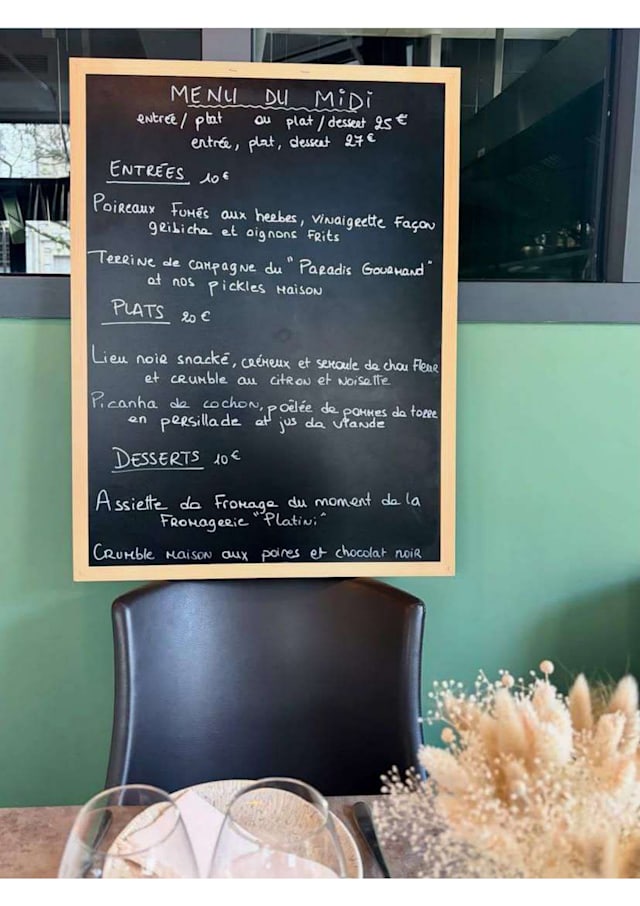 MENU DU MIDI
entrée / plat ou plat / dessert 25 €
entrée, plat, dessert 27 €
ENTRÉES 10 €
Poireaux Fumés aux herbes, vinaigrette Façon
gribiche et oignons Frits
Terrine de campagne du "Paradis Gourmand"
et nos pickles Maison
PLATS 20 €
Lieu noir snacké, crémeux et semoule de chou Fleur
et crumble au citron et noisette
Picanha de cochon, poêlée de pommes de terre
en persillade et jus de viande
DESSERTS 10 €
Assiette de Fromage du moment de la
Fromagerie "Platini"
Crumble Maison aux poires et chocolat noir